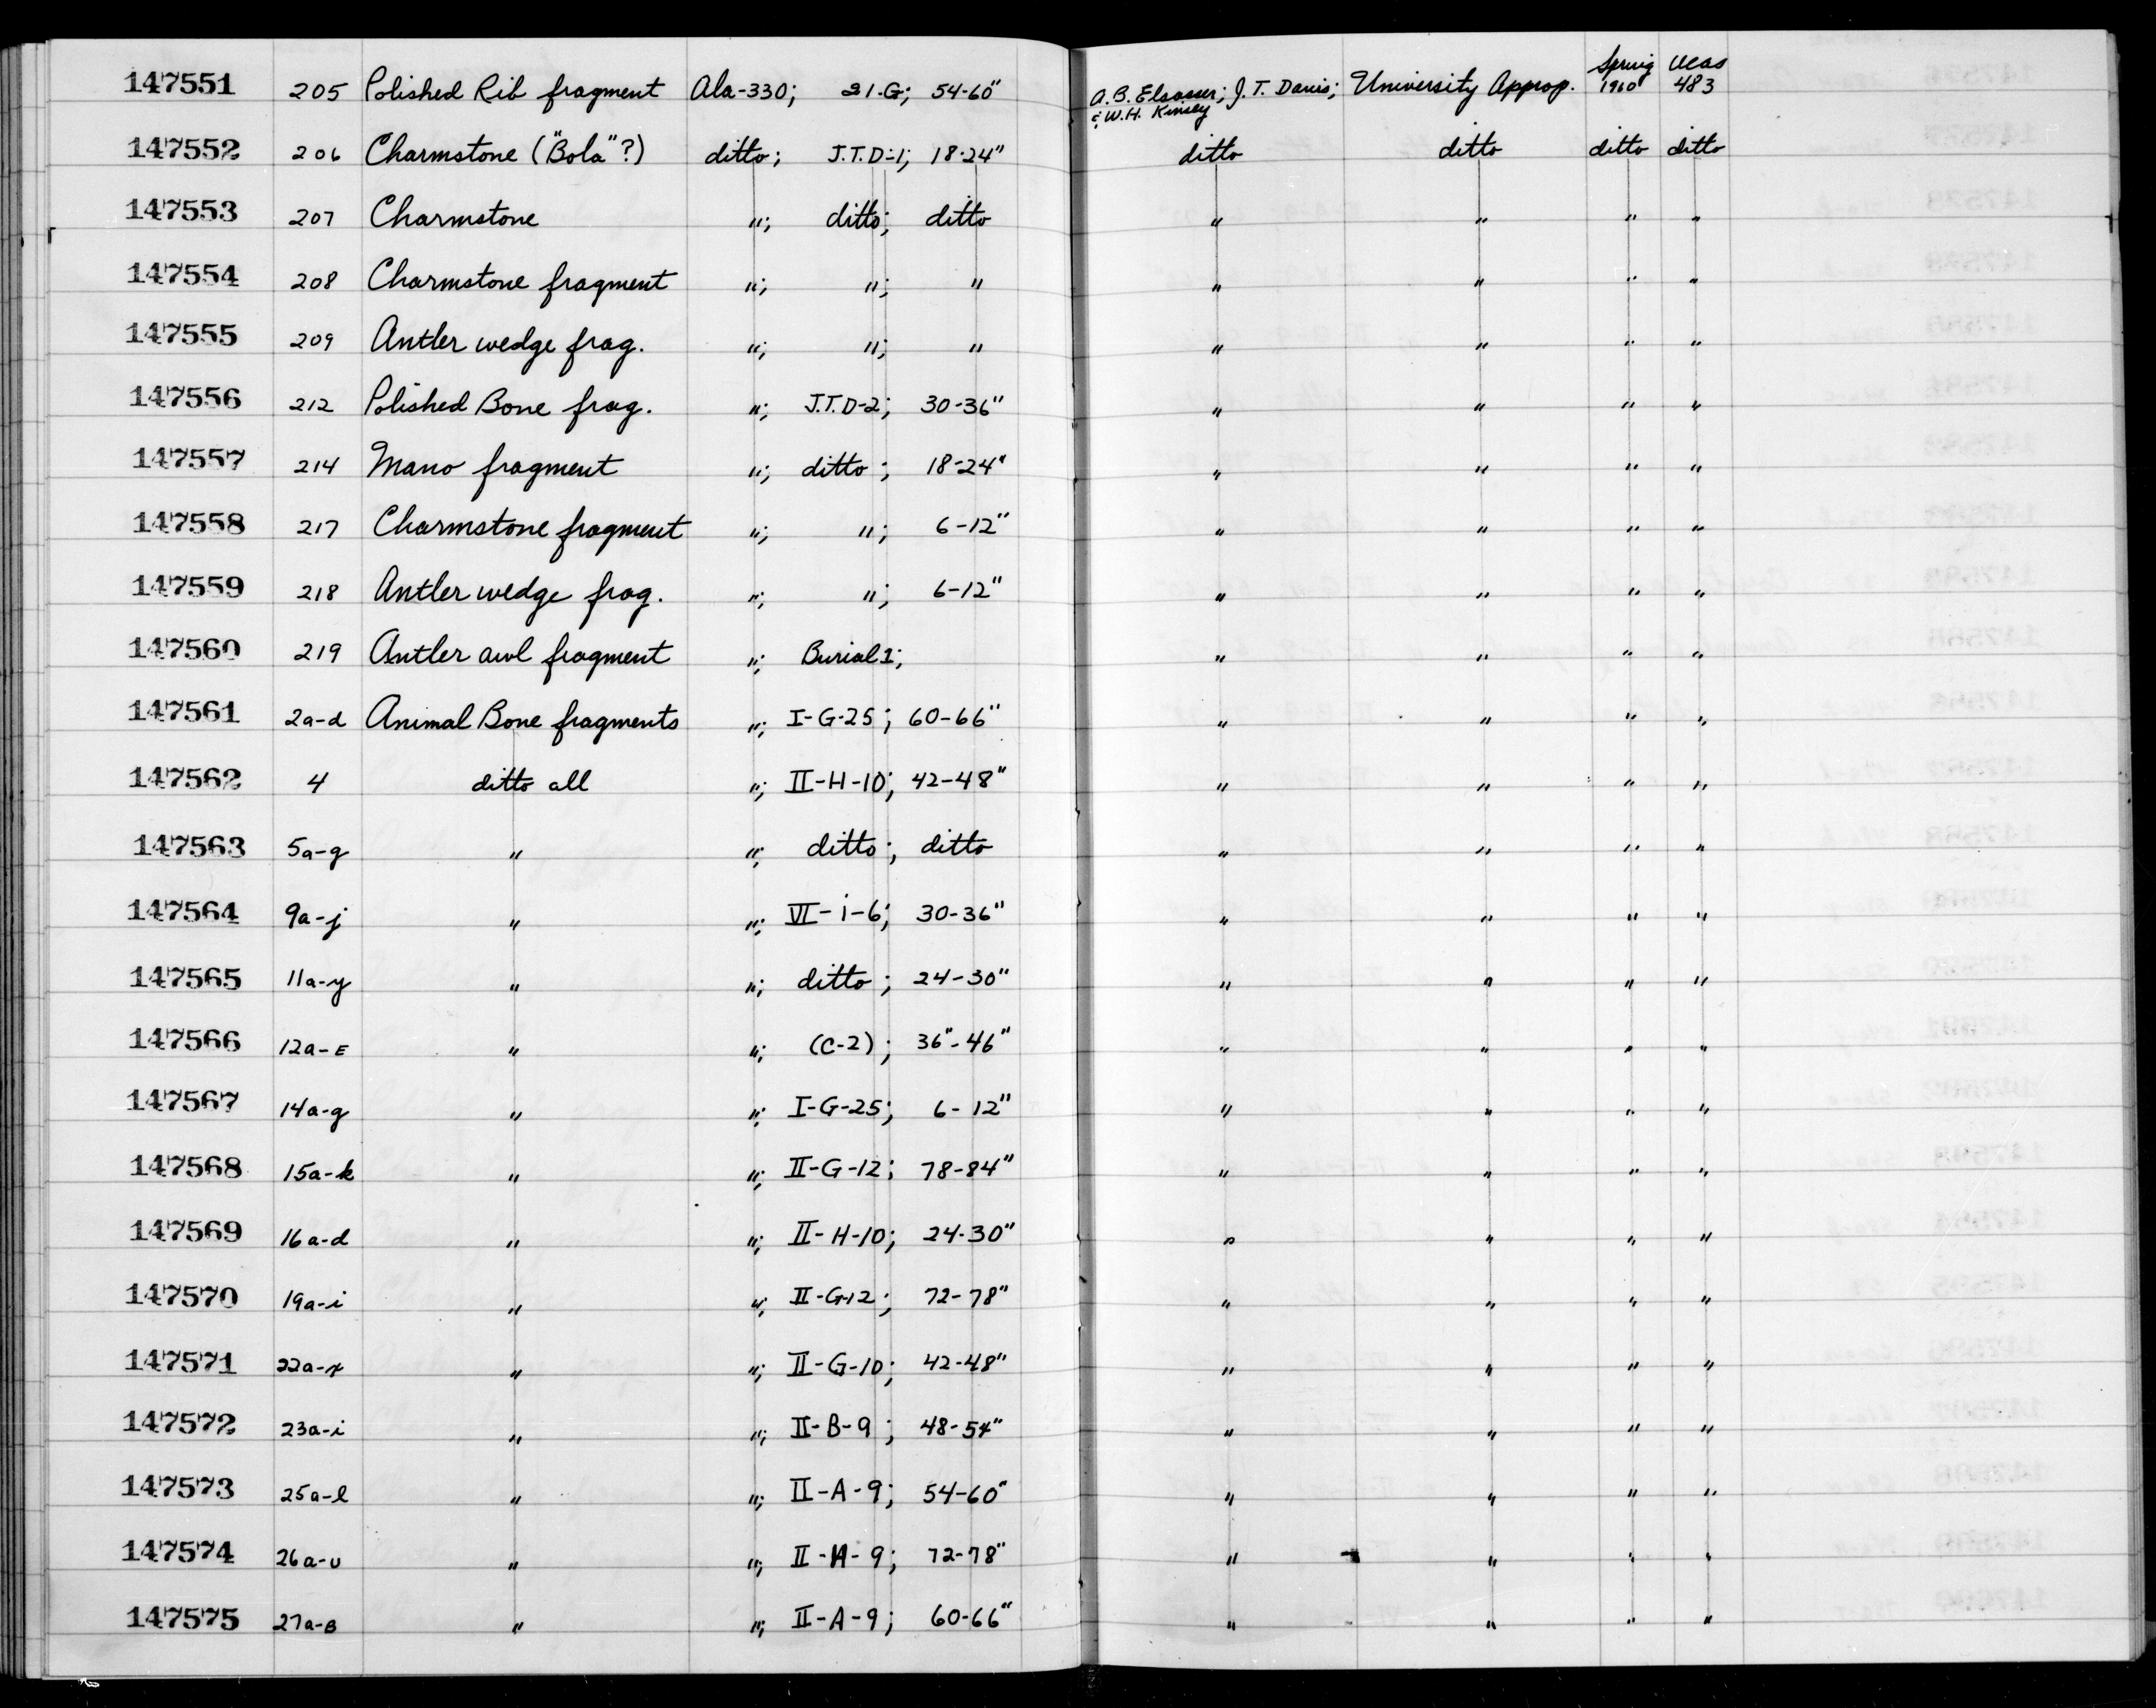 147551 205 Polished Rib fragment Ala-330; 21-G; 54-60" A. B. Elsasser; J. T. Davis; & W.H. Kinsey University Approp. Spring 1960 UCAS 483
147552 206 Charmstone ("Bola"?) ditto; J.T.D-1; 18-24" ditto ditto ditto ditto
147553 207 Charmstone "; ditto; ditto " " " "
147554 208 Charmstone fragment "; "; " " " " "
147555 209 Antler wedge frag. "; "; " " " " "
147556 212 Polished Bone frag. "; J.T.D-2; 30-36" " " " "
147557 214 Mano fragment "; ditto; 18-24" " " " "
147558 217 Charmstone fragment "; "; 6-12" " " " "
147559 218 Antler wedge frag. "; "; 6-12" " " " "
147560 219 Antler awl fragment "; Burial 1; " " " "
147561 2a-d Animal Bone fragments "; I-G-25; 60-66" " " " "
147562 4 ditto all "; II-H-10; 42-48" " " " "
147563 5a-g " "; ditto; ditto " " " "
147564 9a-j " "; VI-i-6; 30-36" " " " "
147565 11a-y " "; ditto; 24-30" " " " "
147566 12a-E " "; (C-2); 36"-46" " " " "
147567 14a-g " "; I-G-25; 6-12" " " " "
147568 15a-k " "; II-G-12; 78-84" " " " "
147569 16a-d " "; II-H-10; 24-30" " " " "
147570 19a-i " "; II-G-12; 72-78" " " " "
147571 " "; II-G-10; 42-48" " " " "
147572 23a-i " "; II-B-9; 48-54" " " " "
147573 25a-l " "; II-A-9; 54-60" " " " "
147574 26a-u " "; 72-78" " " " "
147575 27a-B " "; II-A-9; 60-66" " " " "